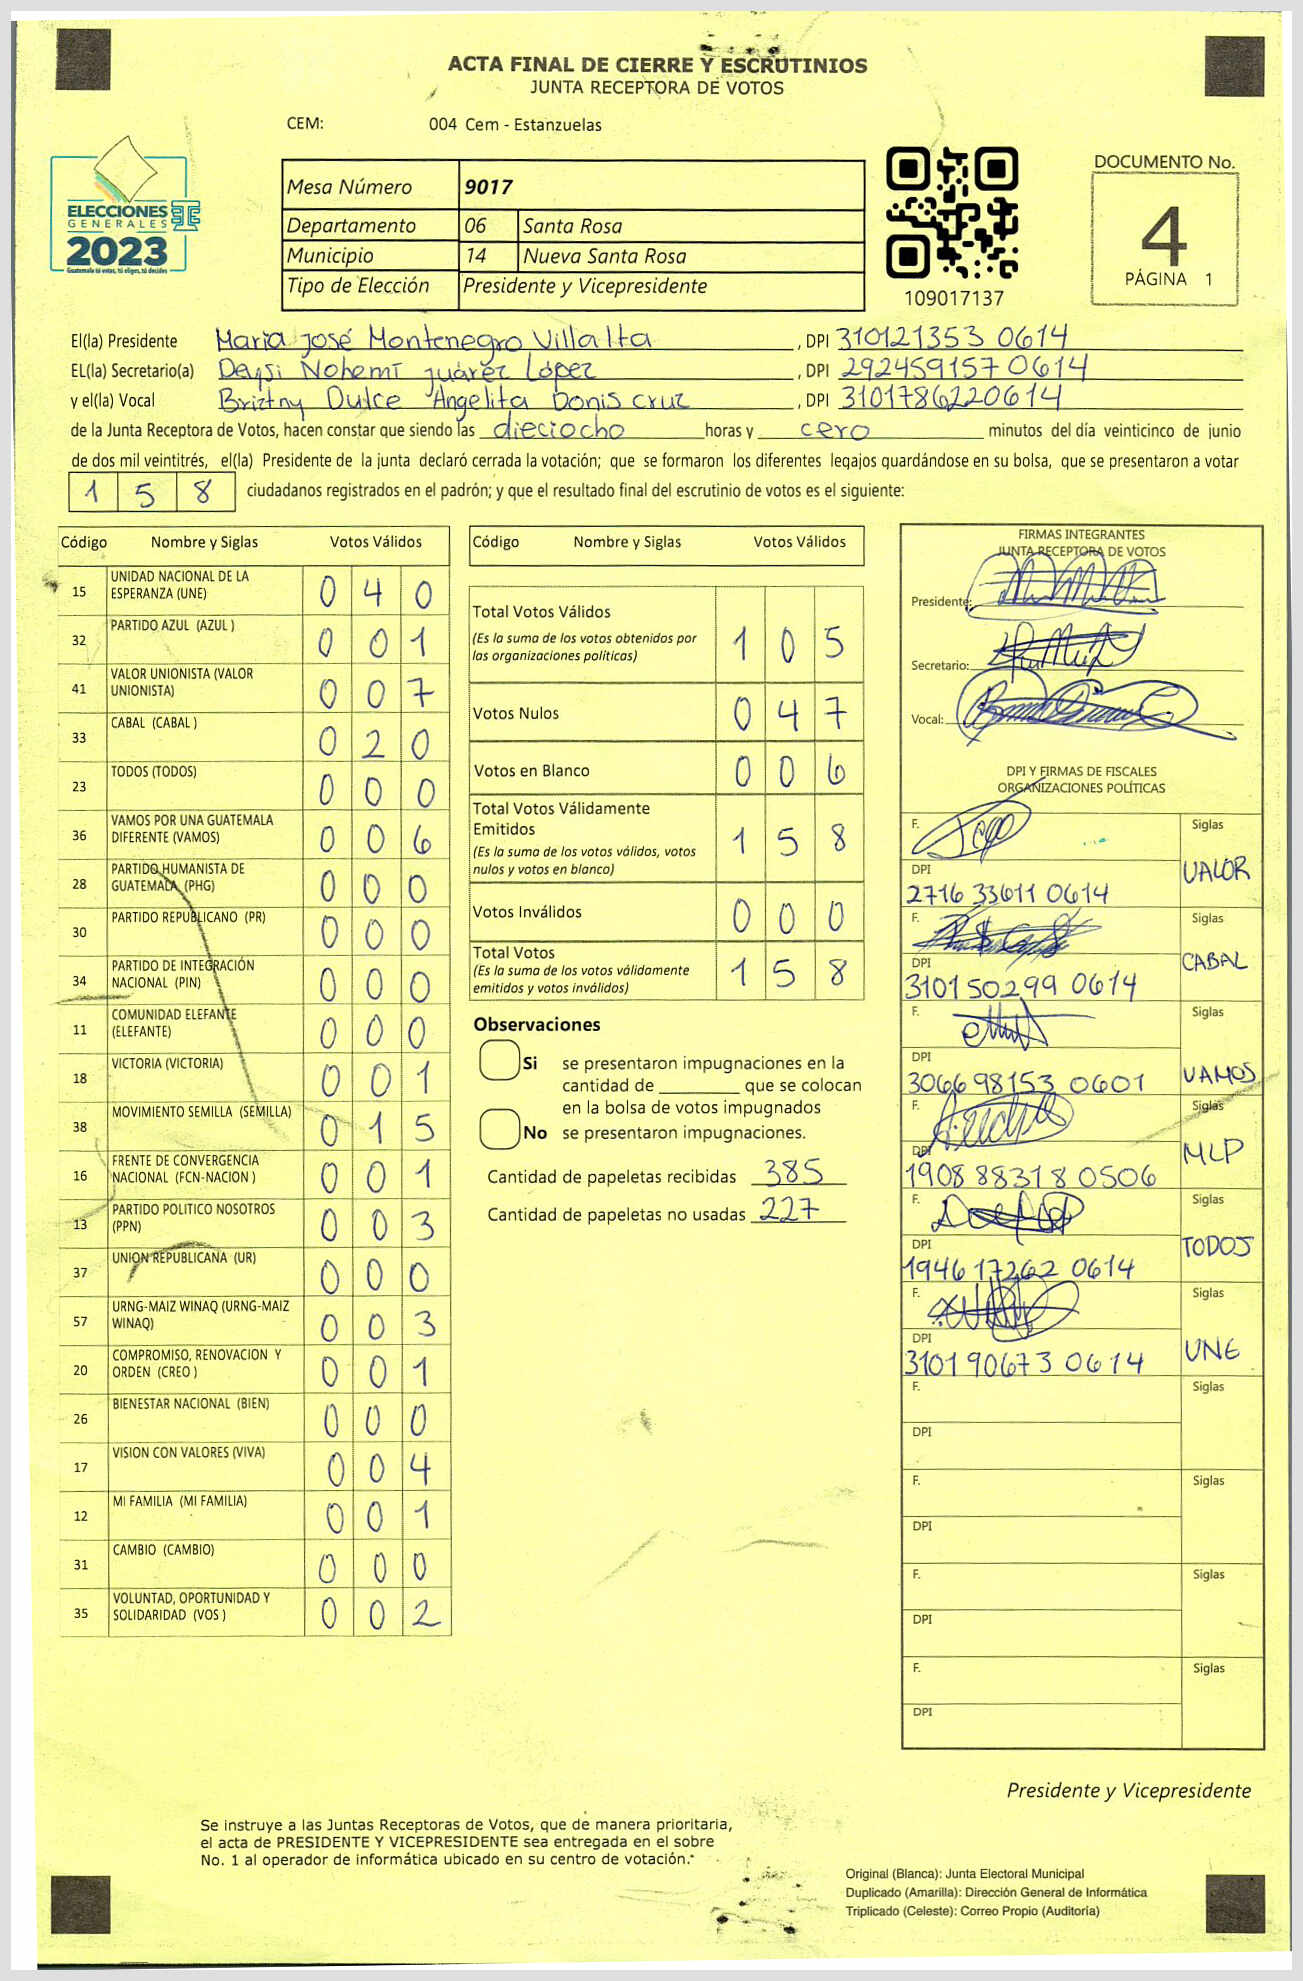 ACTA FINAL DE CIERRE Y ESCRUTINIOS
JUNTA RECEPTORA DE VOTOS
CEM: 004 Cem - Estanzuelas
ELECCIONES
GENERALES
2023
Guatemala tú votas, tú eliges, tú decides
Mesa Número 9017
Departamento 06 Santa Rosa
Municipio 14 Nueva Santa Rosa
Tipo de Elección Presidente y Vicepresidente
109017137
DOCUMENTO No.
4
PÁGINA 1
El(la) Presidente Maria José Montenegro Villalta, DPI 310121353 0614
EL(la) Secretario(a) Deysi Nohemi Juárez López, DPI 292459157 0614
y el(la) Vocal Briztny Dulce Angelita Donis cruz, DPI 3101786220614
de la Junta Receptora de Votos, hacen constar que siendo las dieciocho horas y cero minutos del día veinticinco de junio
de dos mil veintitrés, el(la) Presidente de la junta declaró cerrada la votación; que se formaron los diferentes legajos guardándose en su bolsa, que se presentaron a votar
1 5 8 ciudadanos registrados en el padrón; y que el resultado final del escrutinio de votos es el siguiente:
Código Nombre y Siglas Votos Válidos
15 UNIDAD NACIONAL DE LA ESPERANZA (UNE) 0 4 0
32 PARTIDO AZUL (AZUL ) 0 0 1
41 VALOR UNIONISTA (VALOR UNIONISTA) 0 0 7
33 CABAL (CABAL ) 0 2 0
23 TODOS (TODOS) 0 0 0
36 VAMOS POR UNA GUATEMALA DIFERENTE (VAMOS) 0 0 6
28 PARTIDO HUMANISTA DE GUATEMALA (PHG) 0 0 0
30 PARTIDO REPUBLICANO (PR) 0 0 0
34 PARTIDO DE INTEGRACIÓN NACIONAL (PIN) 0 0 0
11 COMUNIDAD ELEFANTE (ELEFANTE) 0 0 0
18 VICTORIA (VICTORIA) 0 0 1
38 MOVIMIENTO SEMILLA (SEMILLA) 0 1 5
16 FRENTE DE CONVERGENCIA NACIONAL (FCN-NACION ) 0 0 1
13 PARTIDO POLITICO NOSOTROS (PPN) 0 0 3
37 UNION REPUBLICANA (UR) 0 0 0
57 URNG-MAIZ WINAQ (URNG-MAIZ WINAQ) 0 0 3
20 COMPROMISO, RENOVACION Y ORDEN (CREO ) 0 0 1
26 BIENESTAR NACIONAL (BIEN) 0 0 0
17 VISION CON VALORES (VIVA) 0 0 4
12 MI FAMILIA (MI FAMILIA) 0 0 1
31 CAMBIO (CAMBIO) 0 0 0
35 VOLUNTAD, OPORTUNIDAD Y SOLIDARIDAD (VOS ) 0 0 2
Código Nombre y Siglas Votos Válidos
Total Votos Válidos 1 0 5
(Es la suma de los votos obtenidos por
las organizaciones políticas)
Votos Nulos 0 4 7
Votos en Blanco 0 0 6
Total Votos Válidamente
Emitidos 1 5 8
(Es la suma de los votos válidos, votos
nulos y votos en blanco)
Votos Inválidos 0 0 0
Total Votos 1 5 8
(Es la suma de los votos válidamente
emitidos y votos inválidos)
Observaciones
Si se presentaron impugnaciones en la
cantidad de ________ que se colocan
en la bolsa de votos impugnados
No se presentaron impugnaciones.
Cantidad de papeletas recibidas 385
Cantidad de papeletas no usadas 227
FIRMAS INTEGRANTES
JUNTA RECEPTORA DE VOTOS
Presidente:
Secretario:
Vocal:
DPI Y FIRMAS DE FISCALES
ORGANIZACIONES POLÍTICAS
F. Siglas
DPI VALOR
2716 33611 0614
F. Siglas
DPI CABAL
3101 50299 0614
F. Siglas
DPI VAMOS
3066 98153 0601
F. Siglas
DPI MLP
1908 88318 0506
F. Siglas
DPI TODOS
1946 17262 0614
F. Siglas
DPI UNE
3101 90673 0614
F. Siglas
DPI
F. Siglas
DPI
F. Siglas
DPI
F. Siglas
DPI
Presidente y Vicepresidente
Se instruye a las Juntas Receptoras de Votos, que de manera prioritaria,
el acta de PRESIDENTE Y VICEPRESIDENTE sea entregada en el sobre
No. 1 al operador de informática ubicado en su centro de votación.
Original (Blanca): Junta Electoral Municipal
Duplicado (Amarilla): Dirección General de Informática
Triplicado (Celeste): Correo Propio (Auditoría)